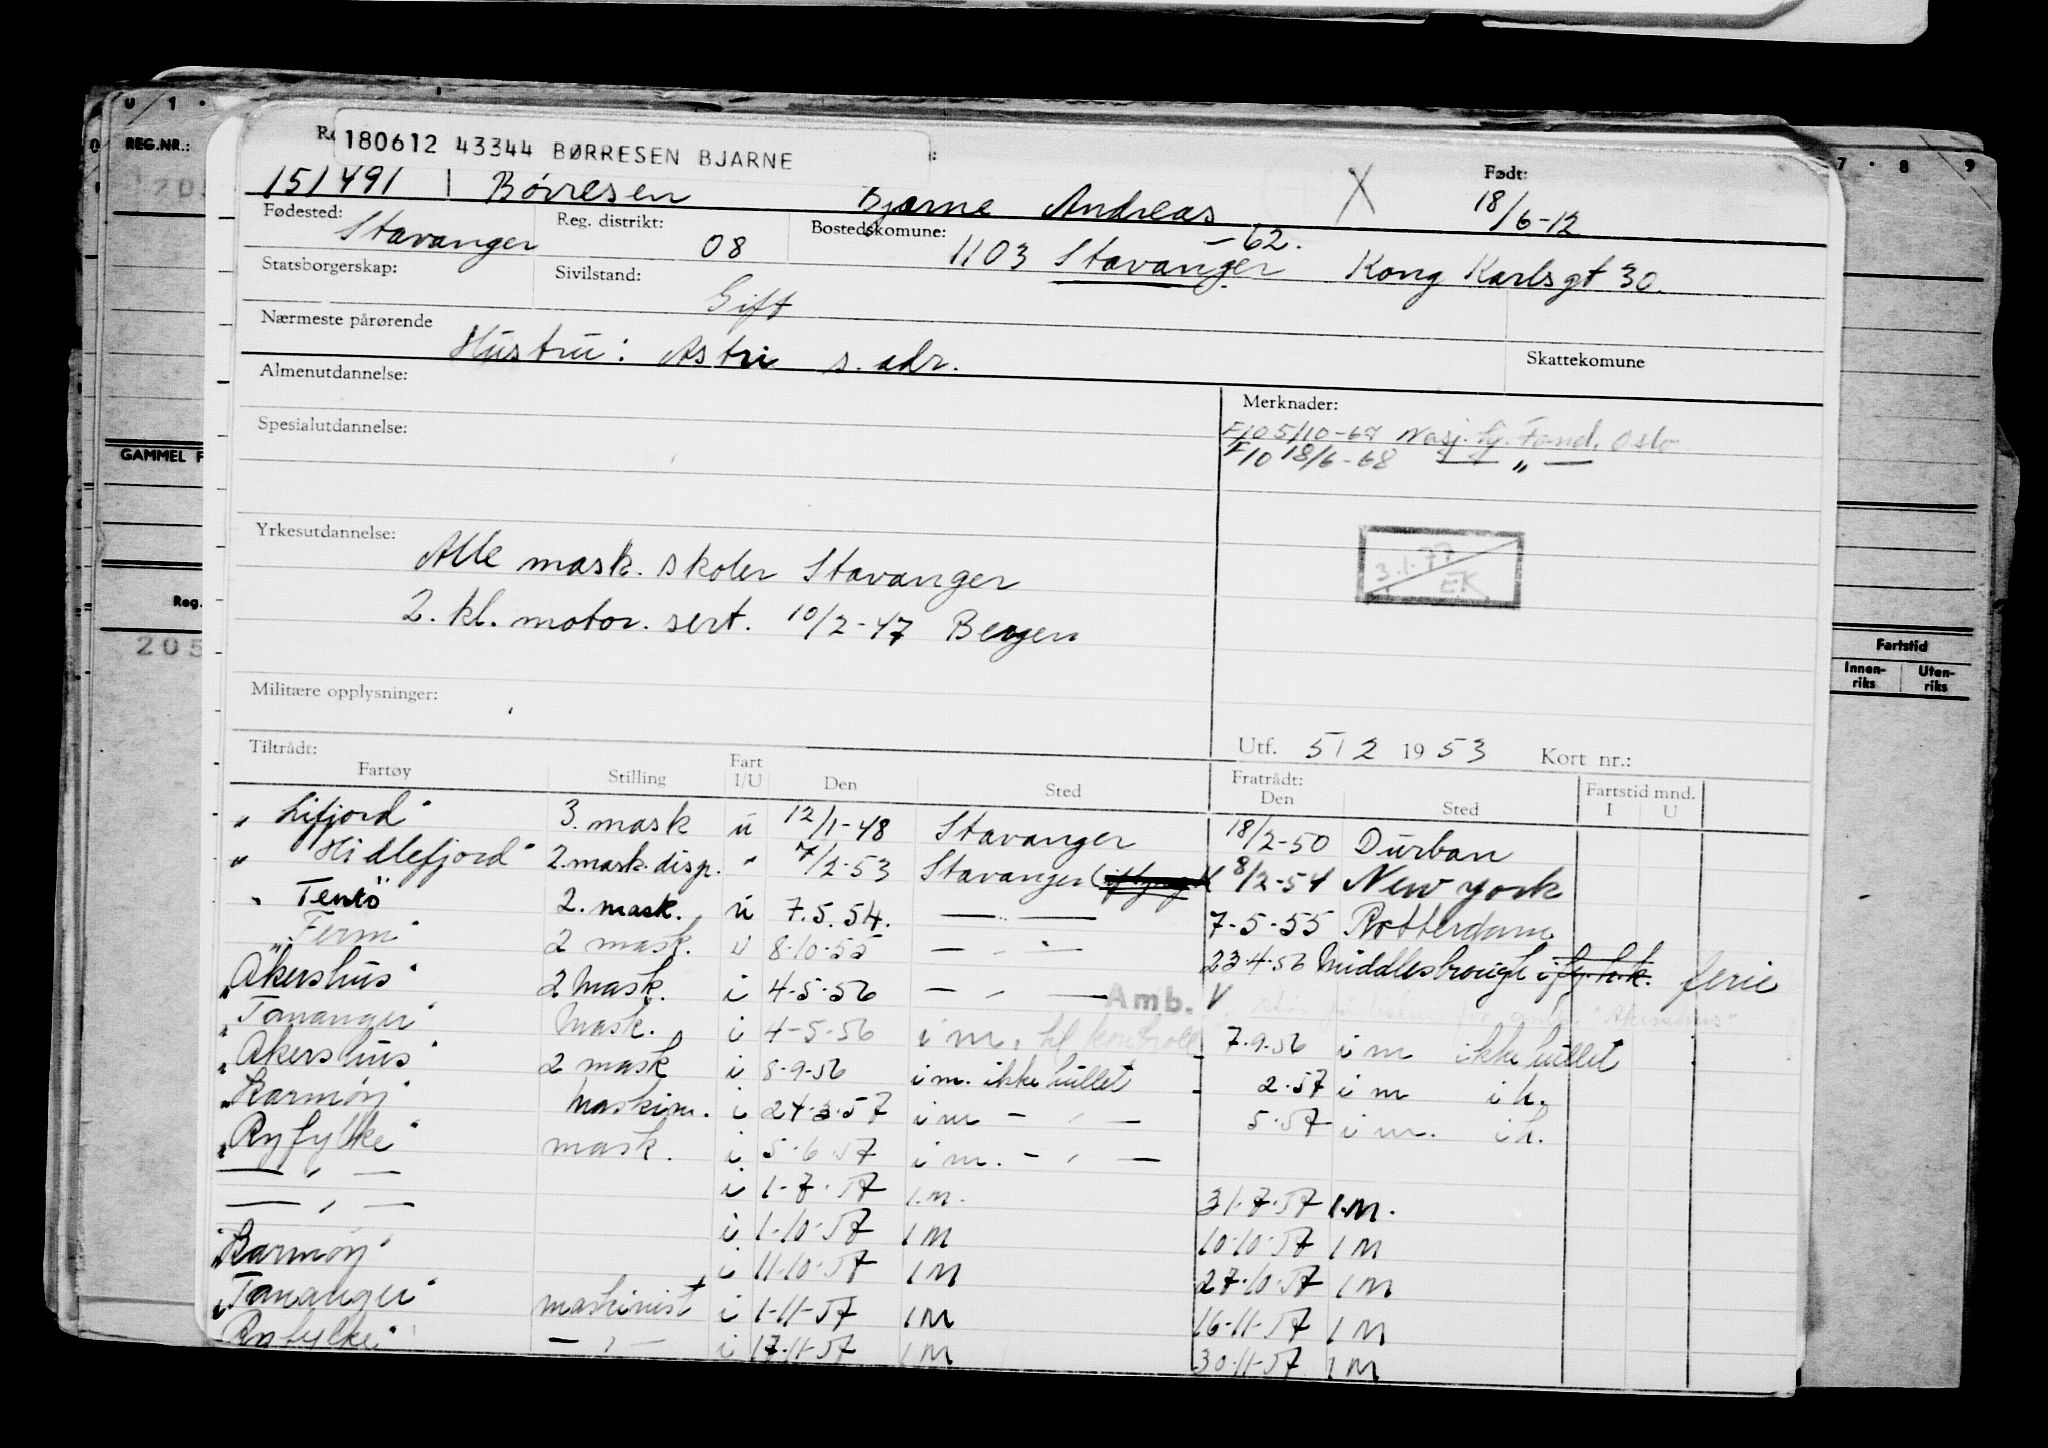 U 1 .
7 . 8 9
REG.NR.:
GAMMEL F
Reg.
205
Fartstid
Innen-riks Uten-riks
180612 43344 BØRRESEN BJARNE
Født:
151491 Børresen Bjarne Andreas X 18/6-12
Fødested: Stavanger Reg. distrikt: 08 Bostedskomune: 1103 Stavanger -62. Kong Karlsgt 30.
Statsborgerskap: Sivilstand: Gift
Nærmeste pårørende Hustru: Astri s. adr. Skattekomune
Almenutdannelse:
Merknader:
Spesialutdannelse:
F10 5/10-67 Nasj. hj. Fond. Oslo
F10 18/6-68 — „ —
Yrkesutdannelse:
Alle mask. skoler Stavanger
3.1.77 EK
2. kl. motor. sert. 10/2-47 Bergen
Militære opplysninger:
Utf. 5/2 1953 Kort nr.:
Tiltrådt: Fratrådt: Fartstid mnd.
Fartøy Stilling Fart I/U Den Sted Den Sted I U
"Lifjord" 3. mask u 12/1-48 Stavanger 18/2-50 Durban
"Hidlefjord" 2. mask. disp. " 7/2-53 Stavanger 8/2-54 New York
"Tento" 2. mask. u 7.5.54. — " — 7-5-55 Rotterdam
"Ferm" 2 mask. u 8-10-55 — " — 23-4-56 Middlesbrough ferie
"Akershus" 2 mask. i 4-5-56 — " — Amb. V
"Tananger" mask. i 4-5-56 i m. til kontroll 7.9.56 i m ikke lullet
"Akershus" 2 mask i 8-9-56 i m. ikke lullet 2.57 i m i h.
"Karmøy" maskin. i 24.3.57 i m — " — 5.57 i m. i h.
"Ryfylke" mask. i 5.6.57 i m. — " —
— " — i 1-7-57 I.M. 31-7-57 I.M.
— " — i 1-10-57 I M 10-10-57 I M
"Karmøy" i 11-10-57 I M 27-10-57 I M
"Tananger" maskinist i 1-11-57 I M 16-11-57 I M
"Ryfylke" — " — i 17-11-57 I M 30-11-57 I M